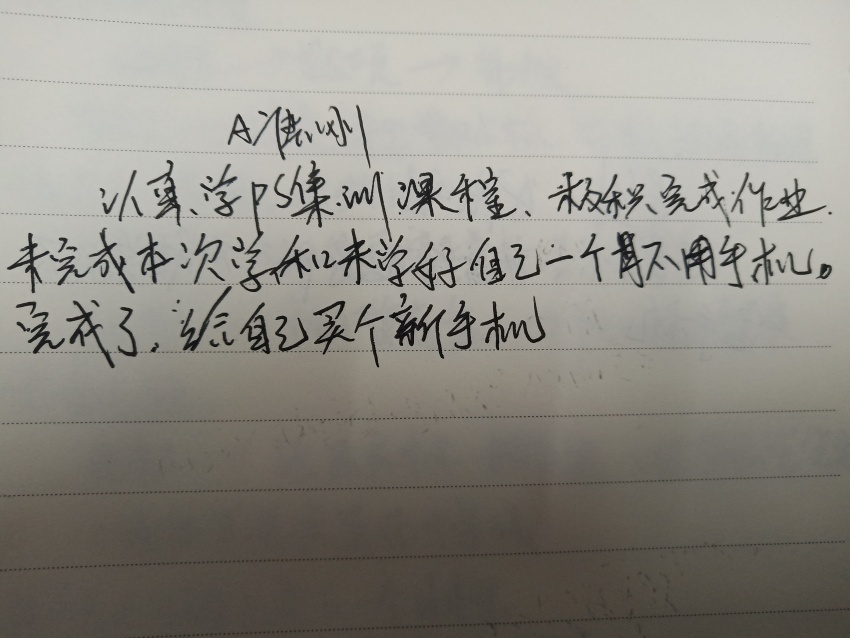 A准则
认真学PS集训课程、积极完成作业.
未完成本次学和未学好自己一个月不用手机。
完成了,给自己买个新手机